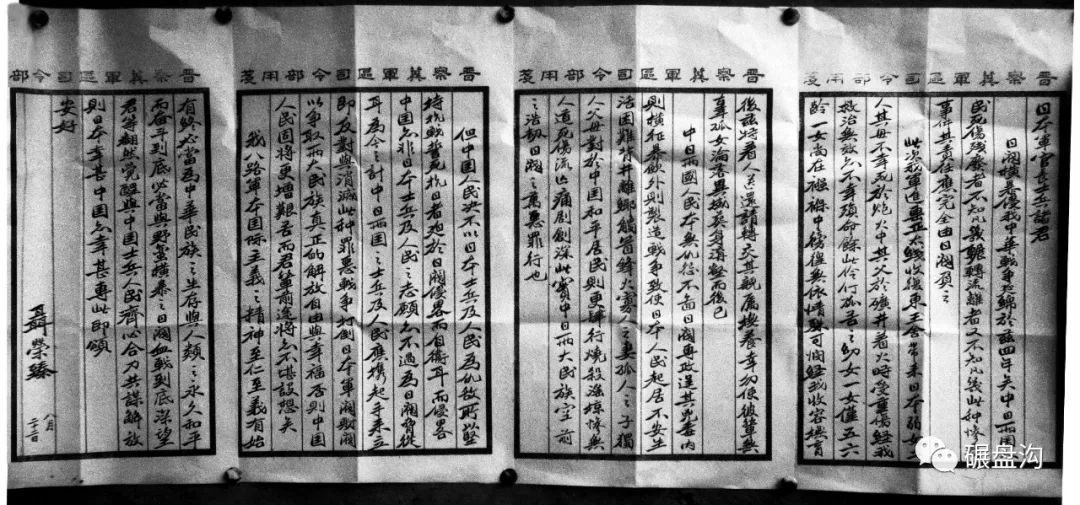 晋察冀軍區司令部用箋
日本軍官長士兵諸君
日閥橫暴侵我中華戰爭延綿於茲四年矣中日兩国人
民死傷殘廢者不知凡幾輾轉流離者又不知凡幾此种慘
事件其責任應完全由日閥負之
此次我軍進擊正太綫收復東王舍帶來日本弱女二
人其母不幸死於炮火中其父於礦井着火時受重傷經我
救治無效亦不幸殞命餘此伶仃孤苦之幼女一女僅五六
齡一女尚在襁褓中彷徨無依情殊可憫經我收容撫育
晋察冀軍區司令部用箋
後茲特着人送還請轉交其親屬撫養幸勿使彼輩無
辜孤女淪落異域葬身溝壑而後已
中日兩國人民本無仇怨不圖日閥專政逞其兇毒内
則橫征暴歛外則製造戰爭致使日本人民起居不安生
活困難背井離鄉觸冒鋒火寡人之妻孤人之子獨
人父母對於中国和平居民則更肆行燒殺淫掠慘無
人道死傷流亡痛劇創深此實中日兩大民族空前
之浩劫日閥之萬惡罪行也
晋察冀軍區司令部用箋
但中国人民决不以日本士兵及人民為仇敵所以堅
持抗戰誓死抗日者迫於日閥侵畧而自衛耳而侵畧
中国亦非日本士兵及人民之志願亦不過為日閥脅從
耳為今之計中日兩国之士兵及人民應携起手來立
即反對與消滅此种罪惡戰爭打倒日本軍閥財閥
以爭取兩大民族真正的解放自由與幸福否則中国
人民固將更增艱苦而君輩前途將亦不堪設想矣
我八路軍本国际主義之精神至仁至義有始
晋察冀軍區司令部
有終必當為中華民族之生存與人類之永久和平
而奋斗到底必當與野蛮橫暴之日閥血戰到底深望
君等翻然覺醒與中国士兵人民齊心合力共謀解放
則日本幸甚中国亦幸甚專此即頌
安好
聶榮臻
八月
二十二日
碾盘沟